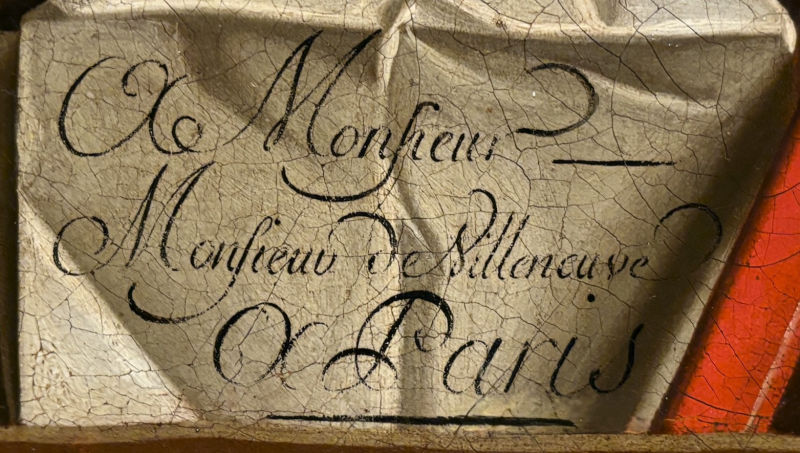 A Monsieur
Monsieur de Villeneuve
A Paris